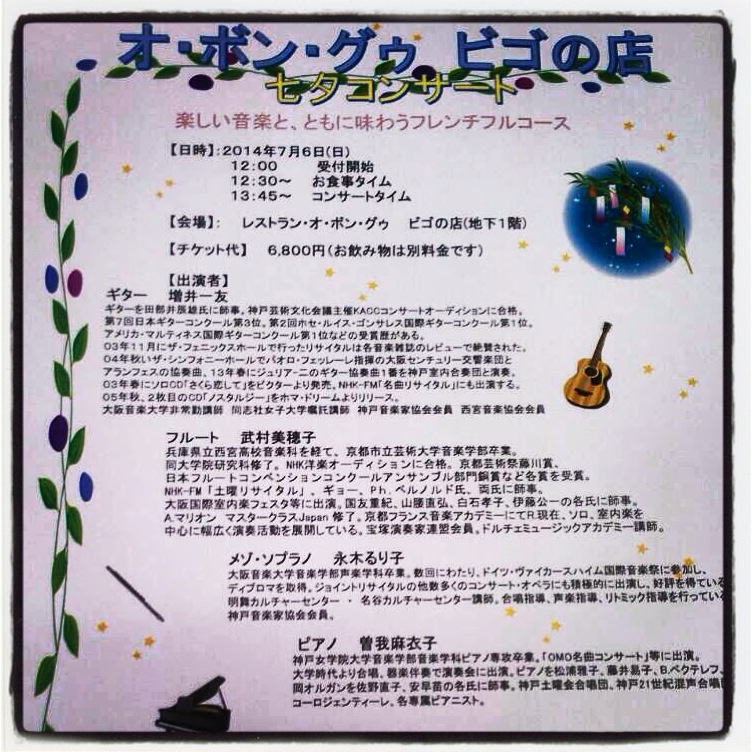 オ・ボン・グゥ ビゴの店
七夕コンサート
楽しい音楽と、ともに味わうフレンチフルコース
【日時】:2014年7月6日(日)
12:00 受付開始
12:30～ お食事タイム
13:45～ コンサートタイム
【会場】: レストラン・オ・ボン・グゥ ビゴの店(地下1階)
【チケット代】 6,800円(お飲み物は別料金です)
【出演者】
ギター 増井一友
ギターを田部井辰雄氏に師事。神戸芸術文化会議主催KACCコンサートオーディションに合格。
第7回日本ギターコンクール第3位。第2回ホセ・ルイス・ゴンサレス国際ギターコンクール第1位。
アメリカ・マルティネス国際ギターコンクール第1位などの受賞歴がある。
03年11月にザ・フェニックスホールで行ったリサイタルは各音楽雑誌のレビューで絶賛された。
04年秋いザ・シンフォニーホールでパオロ・フェッレーレ指揮の大阪センチュリー交響楽団と
アランフェスの協奏曲、13年春にジュリアーニのギター協奏曲1番を神戸室内合奏団と演奏。
03年春にソロCD「さくら恋して」をビクターより発売。NHK-FM「名曲リサイタル」にも出演する。
05年秋、2枚目のCD「ノスタルジー」をホマ・ドリームよりリリース。
大阪音楽大学非常勤講師 同志社女子大学嘱託講師 神戸音楽家協会会員 西宮音楽協会会員
フルート 武村美穂子
兵庫県立西宮高校音楽科を経て、京都市立芸術大学音楽学部卒業。
同大学院研究科修了。NHK洋楽オーディションに合格。京都芸術祭藤川賞、
日本フルートコンベンションコンクールアンサンブル部門銅賞など各賞を受賞。
NHK-FM「土曜リサイタル」、ギョー、Ph.ベルノルド氏、両氏に師事。
大阪国際室内楽フェスタ等に出演。国友重紀、山腰直弘、白石孝子、伊藤公一の各氏に師事。
A.マリオン マスタークラスJapan 修了。京都フランス音楽アカデミーにてP.現在、ソロ、室内楽を
中心に幅広く演奏活動を展開している。宝塚演奏家連盟会員、ドルチェミュージックアカデミー講師。
メゾ・ソプラノ 永木るり子
大阪音楽大学音楽学部声楽学科卒業。数回にわたり、ドイツ・ヴァイカースハイム国際音楽祭に参加し、
ディプロマを取得。ジョイントリサイタルの他数多くのコンサート・オペラにも積極的に出演し、好評を得ている
明舞カルチャーセンター ・ 名谷カルチャーセンター講師。合唱指導、声楽指導、リトミック指導を行ってい
神戸音楽家協会会員。
ピアノ 曽我麻衣子
神戸女学院大学音楽学部音楽学科ピアノ専攻卒業。「OMO名曲コンサート」等に出演。
大学時代より合唱、器楽伴奏で演奏会に出演。ピアノを松浦雅子、藤井易子、B.ペクテレフ、
岡オルガンを佐野直子、安早苗の各氏に師事。神戸土曜会合唱団、神戸21世紀混声合唱
コーロジェンティーレ、各専属ピアニスト。